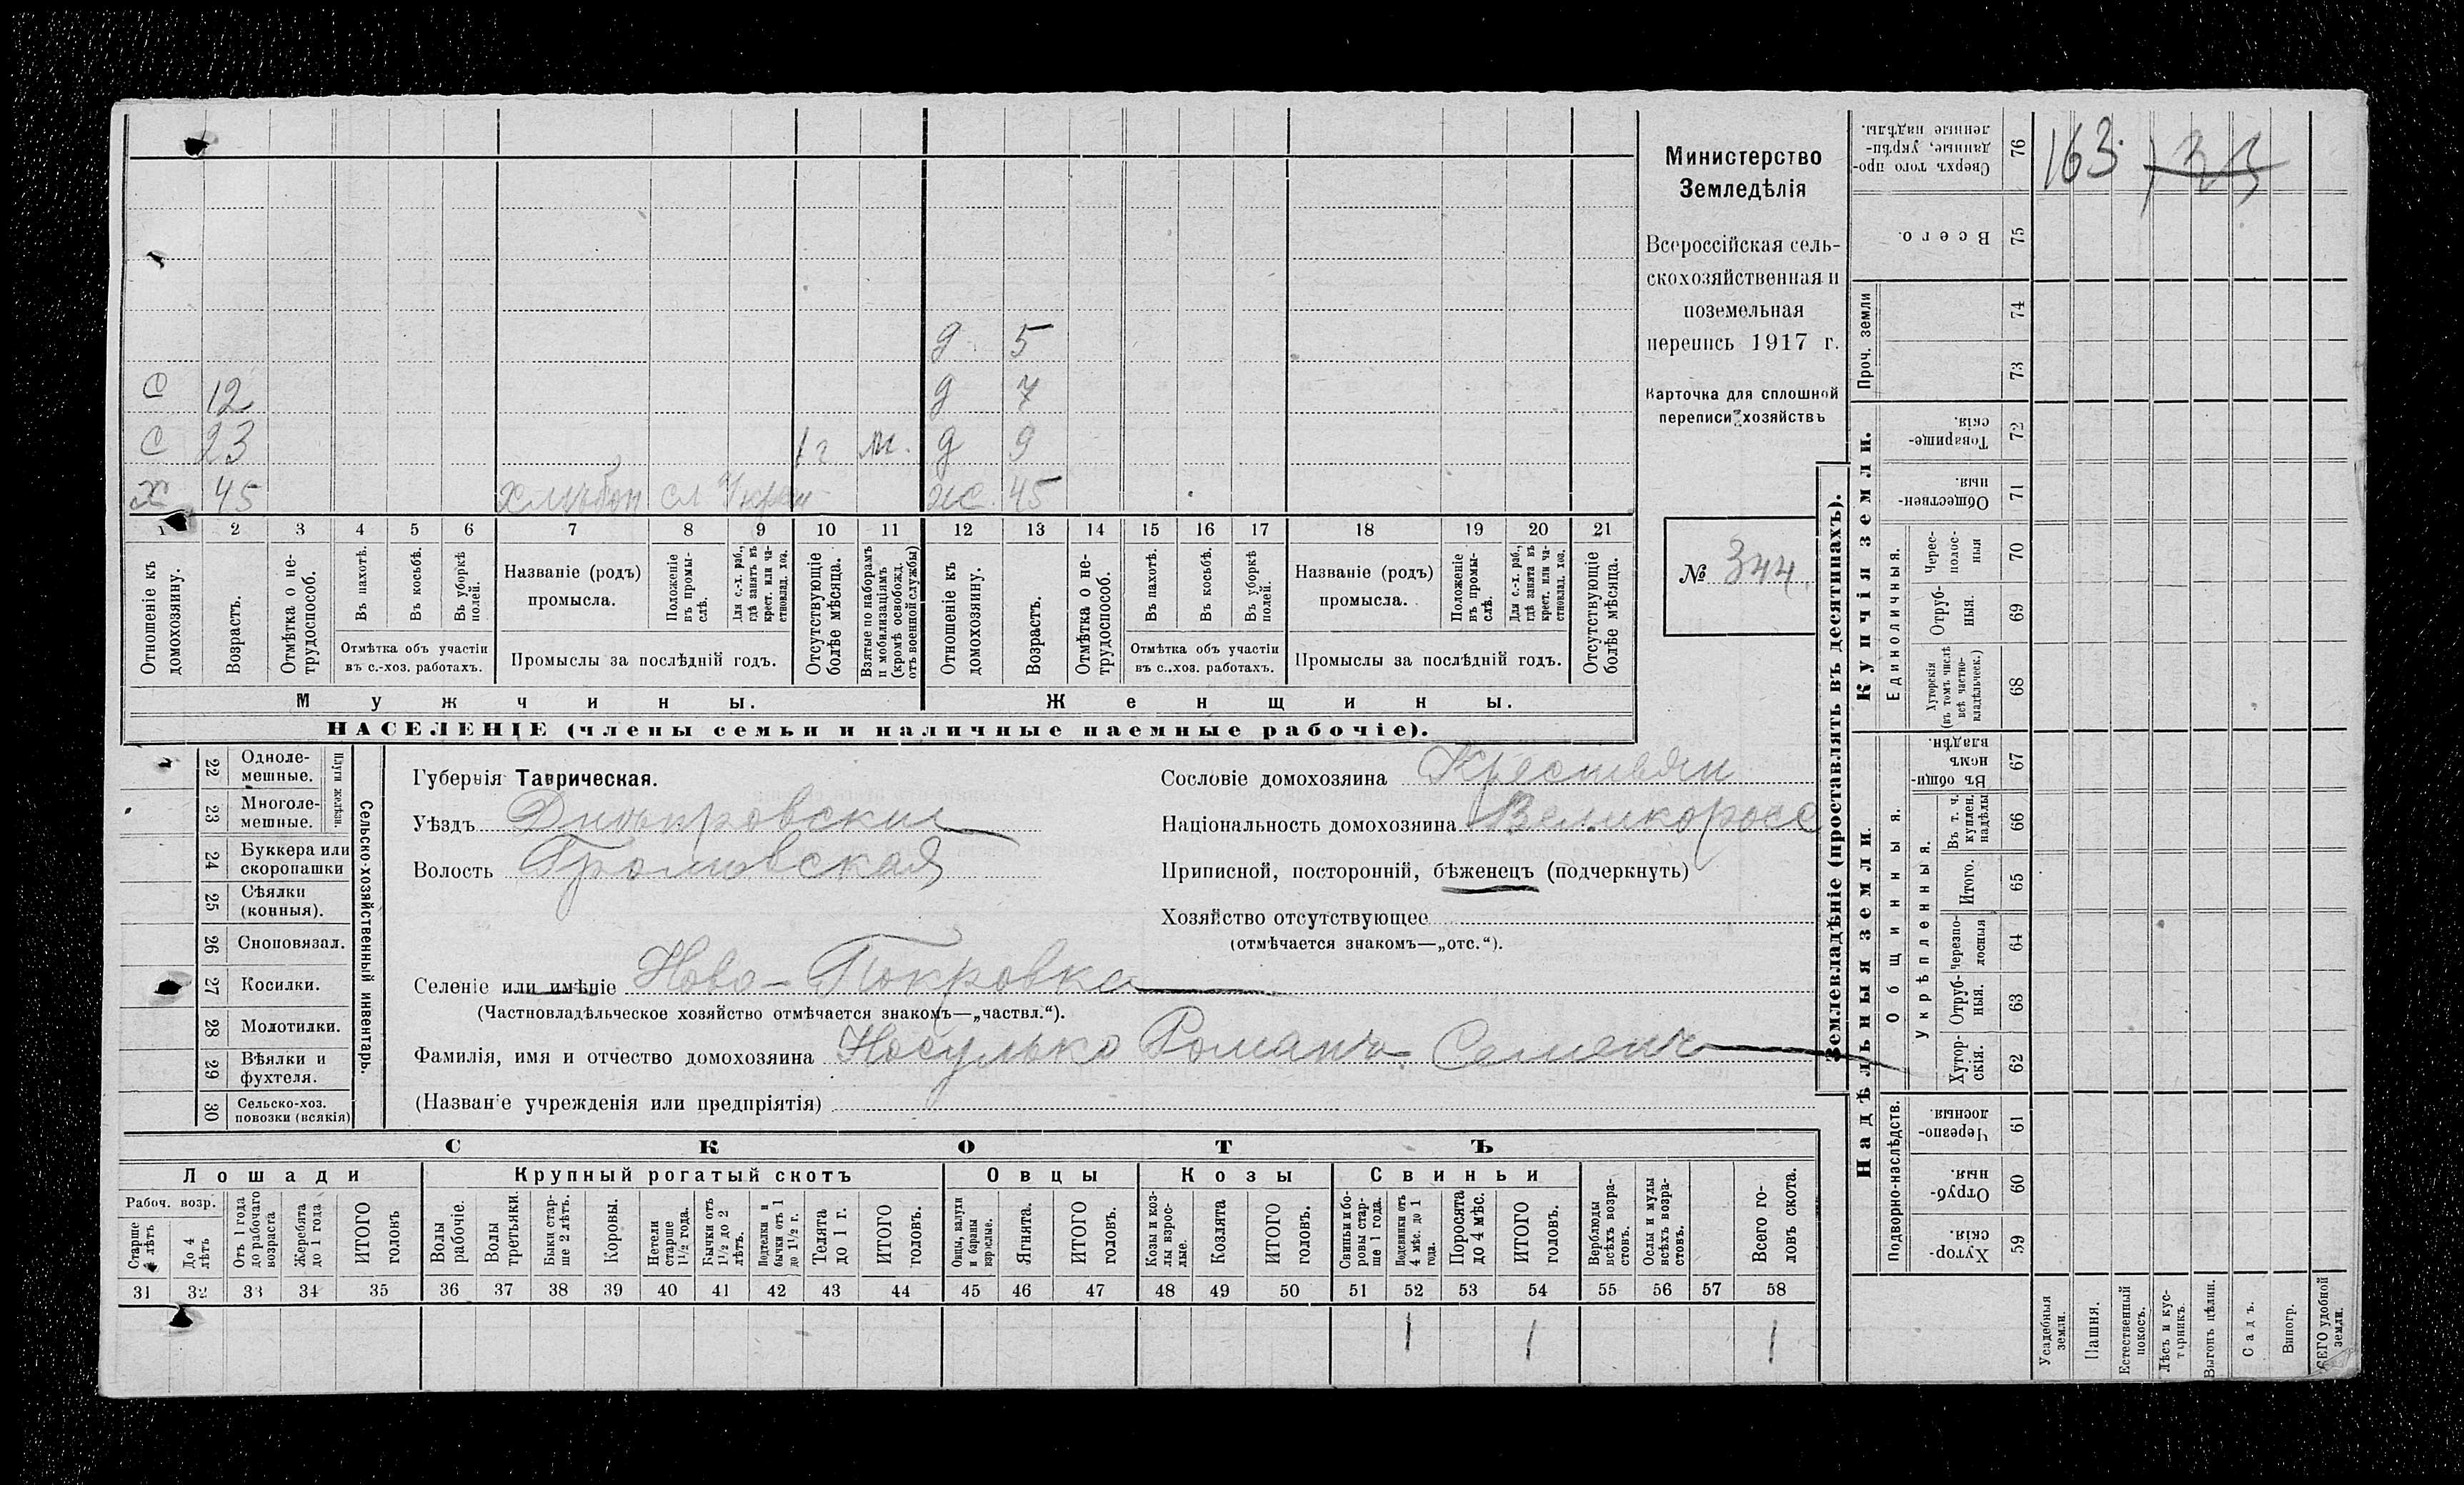 Министерство
Земледѣлія
Всероссійская сель-
скохозяйственная и
поземельная
перепись 1917 г.
Карточка для сплошной
переписи хозяйствъ
№ 344
д 5
с 12 д 7
с 23 1 г м. д 9
Х 45 ж 45
1 2 3 4 5 6 7 8 9 10 11 12 13 14 15 16 17 18 19 20 21
Отношеніе къ домохозяину.
Возрастъ.
Отмѣтка о не-трудоспособ.
Въ пахотѣ.
Въ косьбѣ.
Въ уборкѣ полей.
Отмѣтка объ участіи
въ с.-хоз. работахъ.
Названіе (родъ)
промысла.
Положеніе въ промы-слѣ.
Для с.-х. раб., гдѣ занятъ въ крест. или ча-стновлад. хоз.
Промыслы за послѣдній годъ.
Отсутствующіе болѣе мѣсяца.
Взятые по наборамъ и мобилизаціямъ (кромѣ освобожд. отъ военной службы)
Отношеніе къ домохозяину.
Возрастъ.
Отмѣтка о не-трудоспособ.
Въ пахотѣ.
Въ косьбѣ.
Въ уборкѣ полей.
Отмѣтка объ участіи
въ с.-хоз. работахъ.
Названіе (родъ)
промысла.
Положеніе въ промы-слѣ.
Для с.-х. раб., гдѣ занята въ крест. или ча-стновлад. хоз.
Промыслы за послѣдній годъ.
Отсутствующіе болѣе мѣсяца.
Мужчины. Женщины.
НАСЕЛЕНІЕ (члены семьи и наличные наемные рабочіе).
22 Одноле-мешные.
23 Многоле-мешные.
Плуги желѣзн.
24 Буккера или скоропашки
25 Сѣялки (конныя).
26 Сноповязал.
27 Косилки.
28 Молотилки.
29 Вѣялки и фухтеля.
30 Сельско-хоз. повозки (всякія)
Сельско-хозяйственный инвентарь.
Губернія Таврическая.
Уѣздъ Днѣпровский
Волость Громовская
Сословіе домохозяина Крестьян
Національность домохозяина Великоросс
Приписной, посторонній, бѣженецъ (подчеркнуть)
Хозяйство отсутствующее
(отмѣчается знакомъ—„отс.“).
Селеніе или имѣніе Ново-Покровка
(Частновладѣльческое хозяйство отмѣчается знакомъ—„частвл.“).
Фамилія, имя и отчество домохозяина Носулько Романъ Семенъ
(Названіе учрежденія или предпріятія)
СКОТЪ
Лошади Крупный рогатый скотъ Овцы Козы Свиньи
Рабоч. возр.
Старше 4 лѣтъ
До 4 лѣтъ
Отъ 1 года до рабочаго возраста
Жеребята до 1 года
ИТОГО головъ
Волы рабочіе.
Волы третьяки.
Быки стар-ше 2 лѣтъ.
Коровы.
Нетели старше 1½ года.
Бычки отъ 1½ до 2 лѣтъ.
Подтелки и бычки отъ 1 до 1½ г.
Телята до 1 г.
ИТОГО головъ.
Овцы, валухи и бараны взрослые.
Ягнята.
ИТОГО головъ.
Козы и коз-лы взрос-лые.
Козлята
ИТОГО головъ.
Свиньи и бо-ровы стар-ше 1 года.
Подсвинки отъ 4 мѣс. до 1 года.
Поросята до 4 мѣс.
ИТОГО головъ.
Верблюды всѣхъ возра-стовъ.
Ослы и мулы всѣхъ возра-стовъ.
Всего го-ловъ скота.
31 32 33 34 35 36 37 38 39 40 41 42 43 44 45 46 47 48 49 50 51 52 53 54 55 56 57 58
1 1 1
Землевладѣніе (проставлять въ десятинахъ).
Надѣльныя земли. Купчія земли.
Проч. земли
Подворно-наслѣдств.
Общинныя.
Укрѣпленныя.
Единоличныя.
Сверхъ того про-данные, укрѣп-ленные надѣлы. 76
163.
Всего. 75
74
73
Товарище-скія. 72
Обществен-ныя. 71
Черес-полос-ныя 70
Отруб-ныя. 69
Хуторскія (въ томъ числѣ всѣ частно-владѣльческ.) 68
Въ общи-номъ владѣн. 67
Въ т. ч. куплен. надѣлы 66
Итого. 65
Черезпо-лосныя 64
Отруб-ныя. 63
Хутор-скія. 62
Черезпо-лосныя 61
Отруб-ныя. 60
Хутор-скія. 59
Усадебныя земли.
Пашня.
Естественный покосъ.
Лѣсъ и кус-тарникъ.
Выгонъ цѣлин.
Садъ.
Виногр.
ВСЕГО удобной земли.